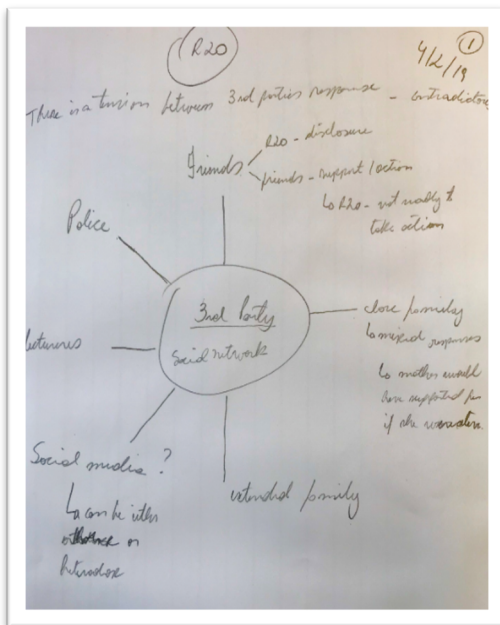 R20
1
4/2/19
There is a tension between 3rd parties response - contradictory
Friends
R20 - disclosure
friends - support / action
R20 - not ready to
take action
Police
3rd Party
Social network
close family
mixed responses
mother would
have supported her
if she was
lecturers
Social media ?
can be either
or
heterodox
extended family